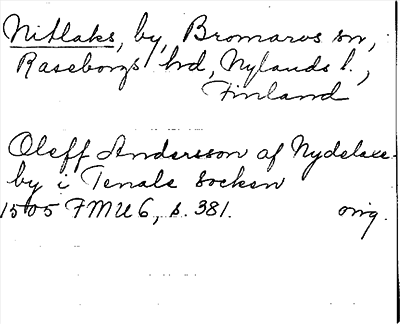 Nitlaks, by, Bromarvs sn,
Raseborgs hd, Nylands l.,
Finland
Oleff Andersson af Nydelaxe
by i Tenala socken
1505 FMU 6, s. 381. orig.